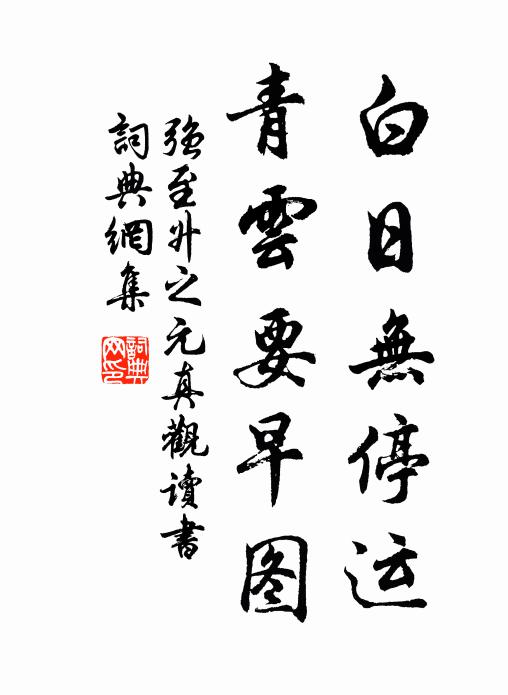 白日無停运
青雲要早图
強至升之元真觀读書
詞典網集
詞典网印